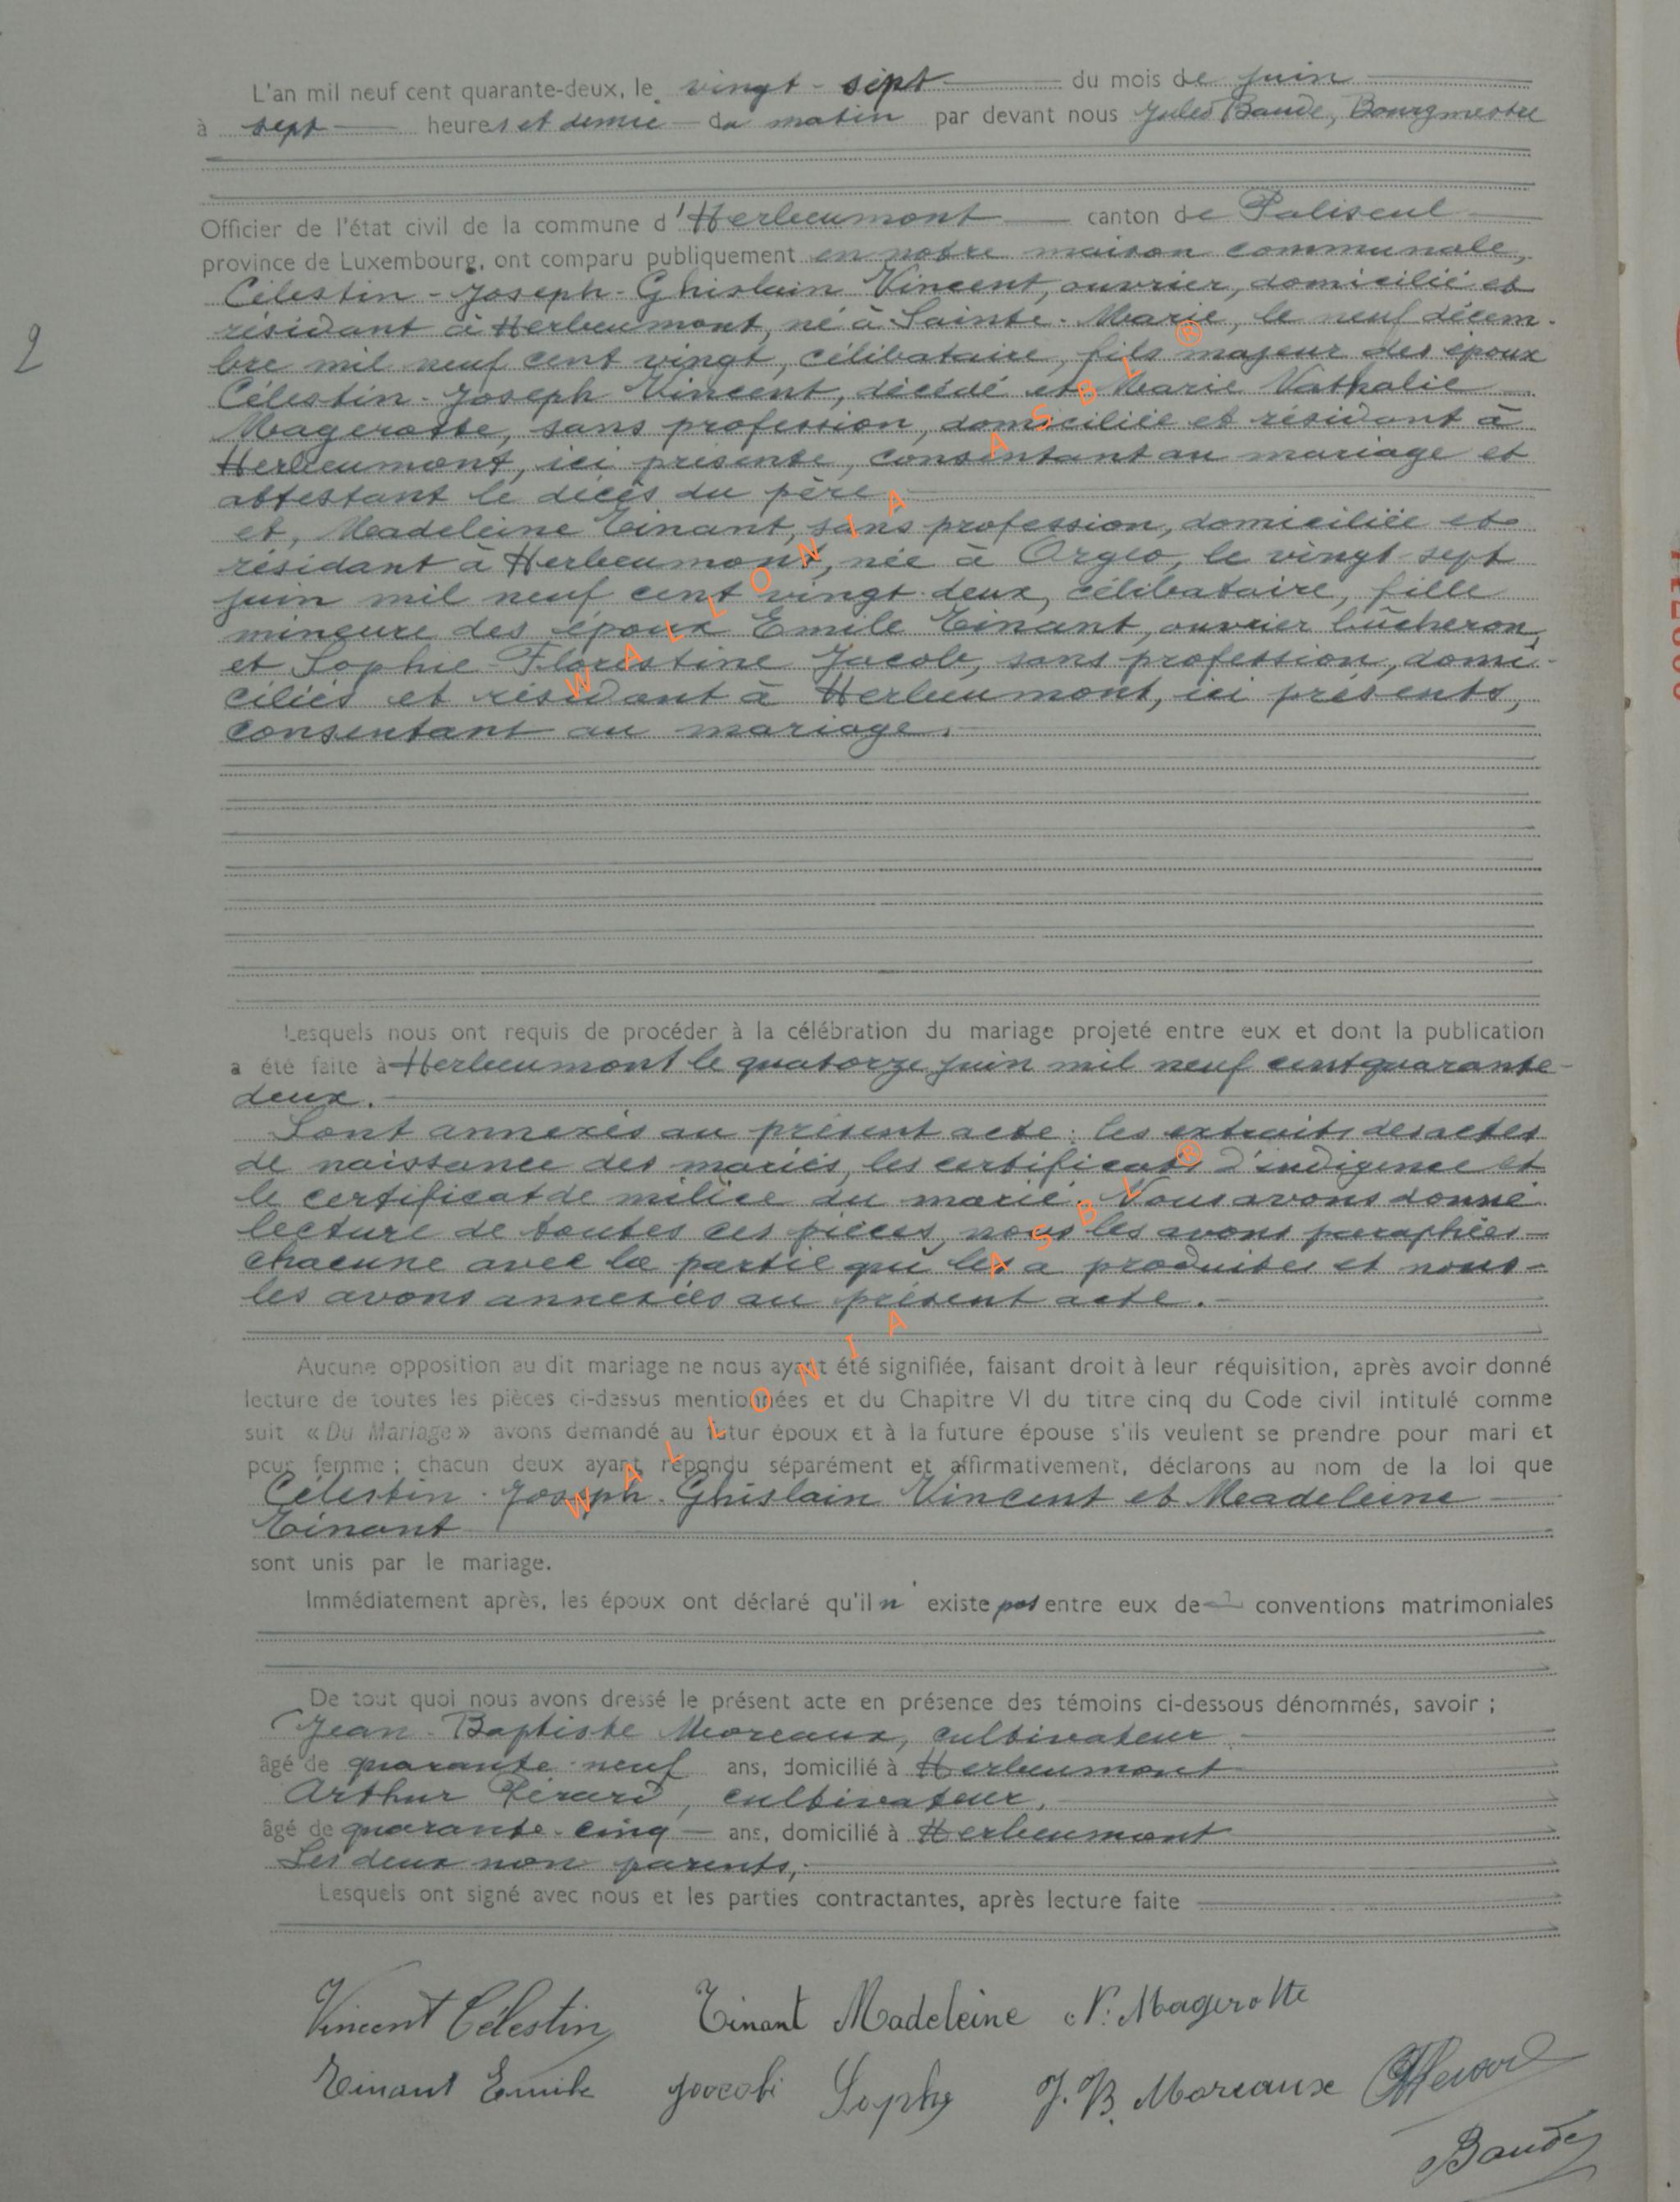 L'an mil neuf cent quarante-deux, le vingt-sept du mois de juin
à sept heures et demie du matin par devant nous Jules Baude, Bourgmestre
Officier de l'état civil de la commune d'Herbeumont canton de Paliseul
province de Luxembourg, ont comparu publiquement en notre maison communale,
Célestin-Joseph-Ghislain Vincent, ouvrier, domicilié et
résidant à Herbeumont, né à Sainte-Marie, le neuf décem-
bre mil neuf cent vingt, célibataire, fils majeur des époux
Célestin-Joseph Vincent, décédé et Marie Nathalie
Magerotte, sans profession, domiciliée et résidant à
Herbeumont, ici présente, consentant au mariage et
attestant le décès du père.
et, Madeleine Tinant, sans profession, domiciliée et
résidant à Herbeumont, née à Orgeo, le vingt-sept
juin mil neuf cent vingt-deux, célibataire, fille
mineure des époux Emile Tinant, ouvrier bûcheron,
et Sophie Florestine Jacob, sans profession, domi-
ciliés et résidant à Herbeumont, ici présents,
consentant au mariage.
2
Lesquels nous ont requis de procéder à la célébration du mariage projeté entre eux et dont la publication
a été faite à Herbeumont le quatorze juin mil neuf cent quarante-
deux.
Sont annexés au présent acte: les extraits des actes
de naissance des mariés, les certificats d'indigence et
le certificat de milice du marié. Nous avons donné
lecture de toutes ces pièces, nous les avons paraphées
chacune avec la partie qui les a produites et nous
les avons annexées au présent acte.
Aucune opposition au dit mariage ne nous ayant été signifiée, faisant droit à leur réquisition, après avoir donné
lecture de toutes les pièces ci-dessus mentionnées et du Chapitre VI du titre cinq du Code civil intitulé comme
suit « Du Mariage » avons demandé au futur époux et à la future épouse s'ils veulent se prendre pour mari et
pour femme ; chacun deux ayant répondu séparément et affirmativement, déclarons au nom de la loi que
Célestin-Joseph-Ghislain Vincent et Madeleine
Tinant
sont unis par le mariage.
Immédiatement après, les époux ont déclaré qu'il n'existe pas entre eux de conventions matrimoniales
De tout quoi nous avons dressé le présent acte en présence des témoins ci-dessous dénommés, savoir ;
Jean-Baptiste Moreaux, cultivateur
âgé de quarante-neuf ans, domicilié à Herbeumont
Arthur Pérard, cultivateur,
âgé de quarante-cinq ans, domicilié à Herbeumont
Les deux non parents,
Lesquels ont signé avec nous et les parties contractantes, après lecture faite
Vincent Célestin Tinant Madeleine N. Magerotte
Tinant Emile Jacob Sophie J.B. Moreaux
Baude
WALLONIA ASBL ®
WALLONIA ASBL ®